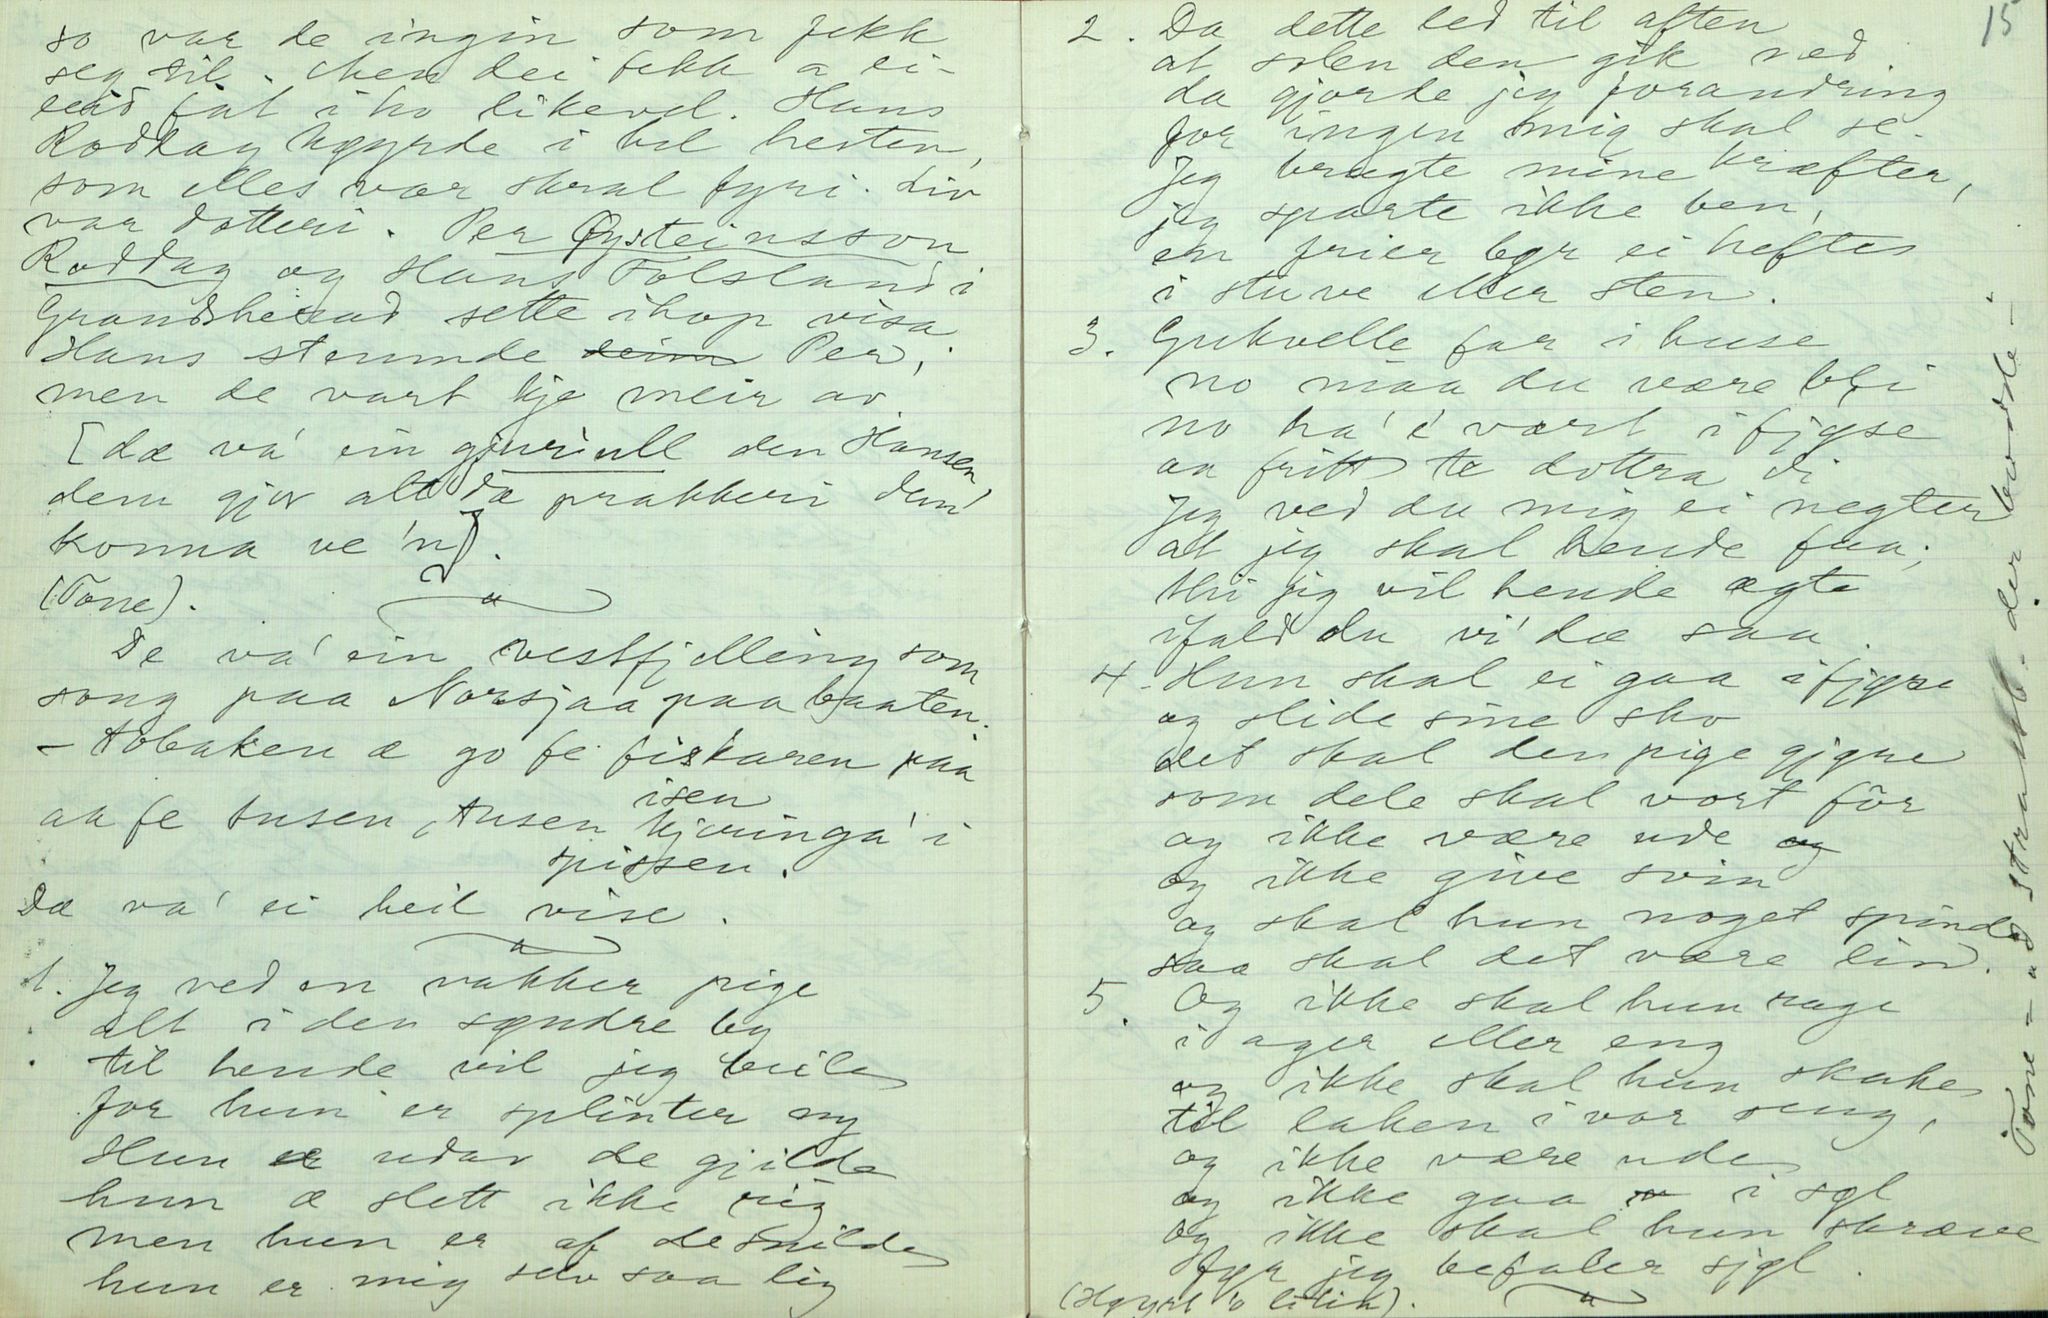 so var de ingin som fekk
seg til. Men dei fekk a ei-
fat i ho likevel. Hans
Roddag køyrde i hel hesten,
som elles var skral fyri. Liv
var dotteri. Per Øysteinsson
Roddag og Hans Folsland i
Grandsherad sette ihop visa
Hans stemnde deim Per,
men de vart kje meir av.
[dæ va' ein den Hansen,
dem gjor alt dæ prakkeri dem'
konna ve 'n].
(Tone).
De va' ein vestfjelling som
song paa Norsjaa paa baaten.
- Tobaken æ go fe fiskaren paa
isen
aa fe tusen, tusen kjæringa' i
spissen.
Dæ va' ei heil vise.
1. Jeg ved en vakker pige
alt i den søndre by
til hende vil jeg beile
for hun er splinter ny
Hun er udav de gjilde
hun æ slett ikke rig
men hun er af de snilde
hun er mig selv saa lig
15
2. Da dette led til aften
at solen den gik ned
da gjorde jeg forandring
for ingen mig skal se.
Jeg brugte mine kræfter,
jeg sparte ikke ben,
en frier bør ei heftes
i stuve eller sten.
3. Gukvelle far i huse
no maa du være bli
no ha' e' vært i fjøse
aa fritt te dottra di
Jeg ved du mig ei negter
at jeg skal hende faa,
thi jeg vil hende ægte
ifald du vi' dæ saa.
4. Hun skal ei gaa i fjøse
og slide sine sko
det skal den pige gjøre
som dele skal vort
og ikke være ude og
og ikke give svin
og skal hun noget spinde
saa skal det være lin.
5. Og ikke skal hun rage
i ager eller eng
og ikke skal hun skake
til laken i vor seng,
og ikke være ude
og ikke gaa i søl
og ikke skal hun skræve
før jeg befaler sjøl.
(Høyrt 'o litik).
Tone - ud Strand - der budde -